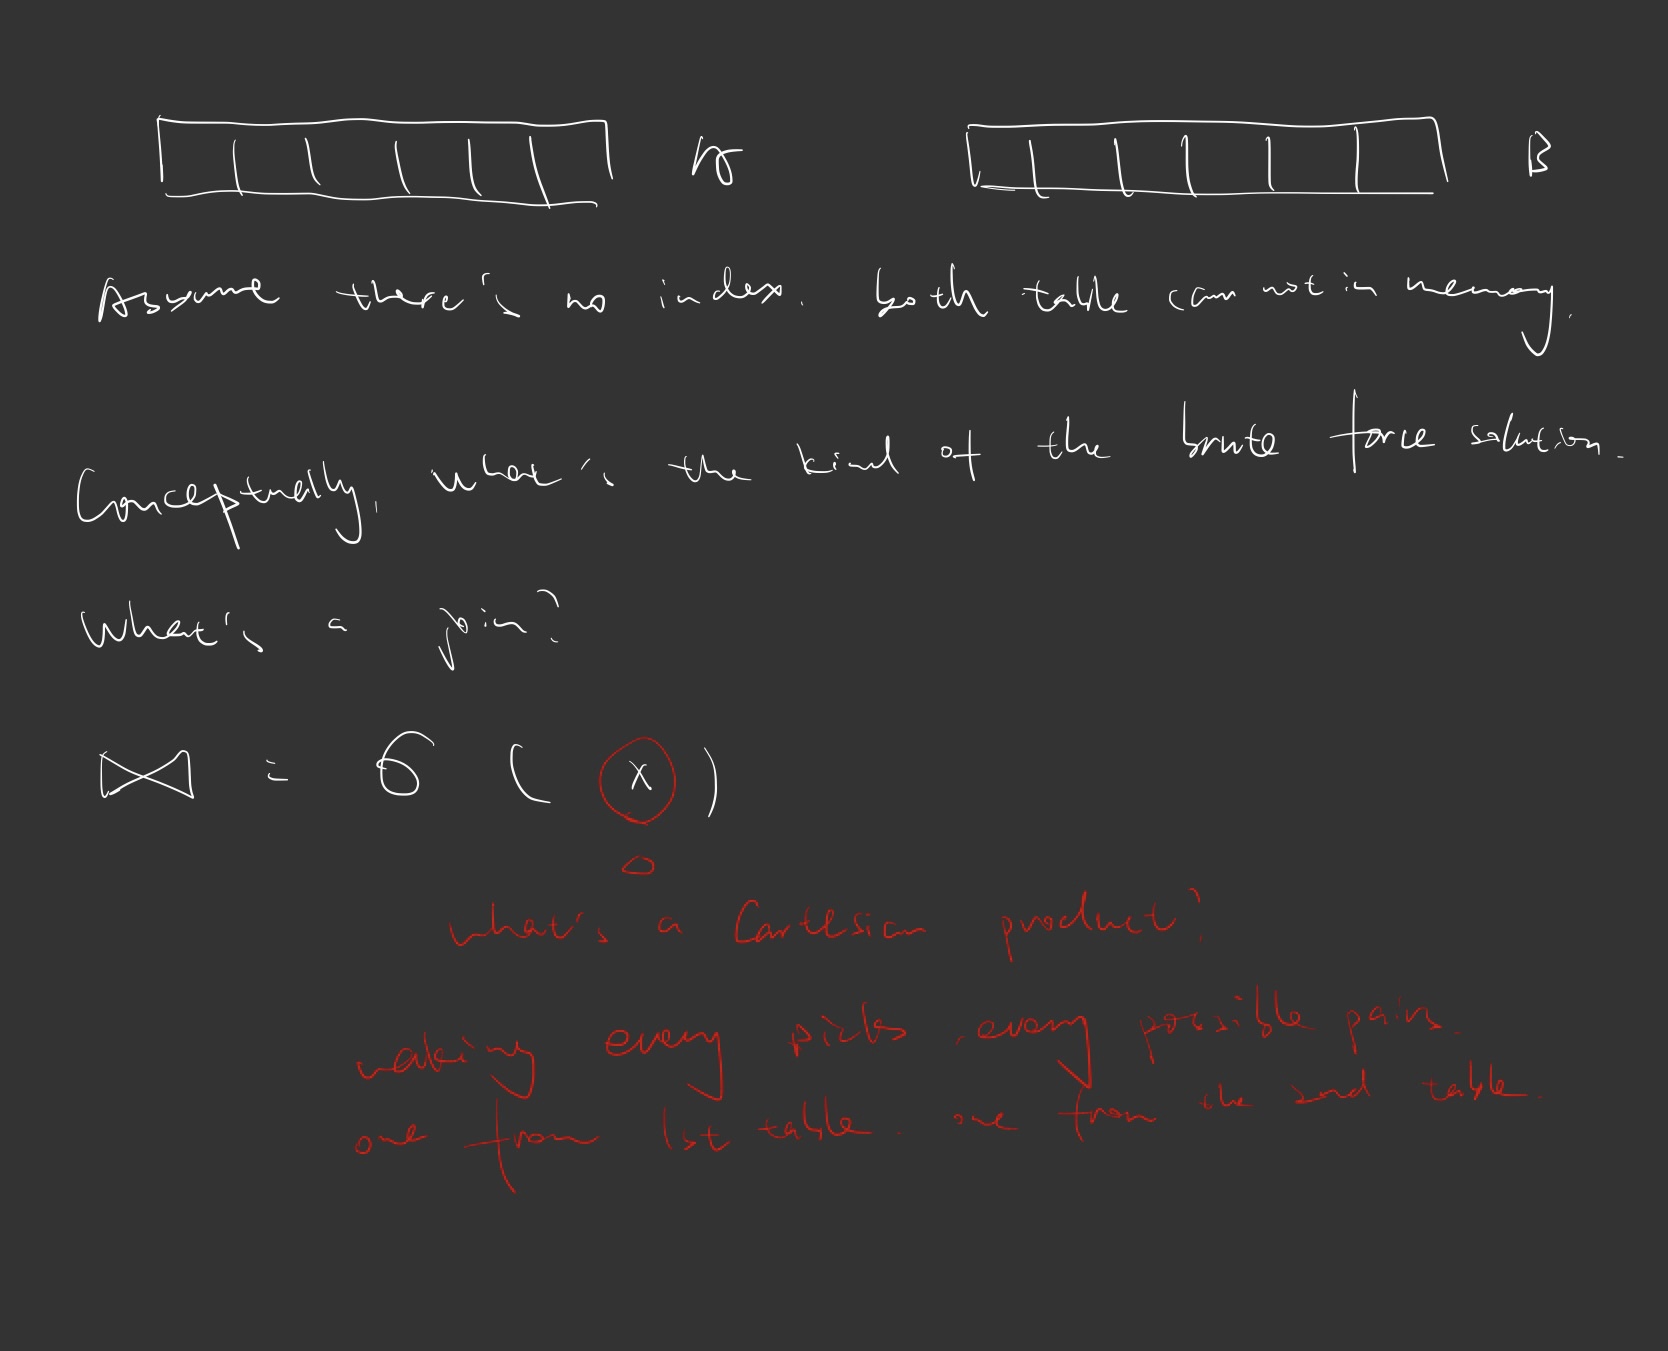 A B
Assume there's no index. both table can not in memory.
Conceptually, what's the kind of the brute force solution.
What's a join?
⋈ = σ ( x )
what's a Cartesian product?
making every picks, every possible pairs.
one from 1st table. one from the 2nd table.